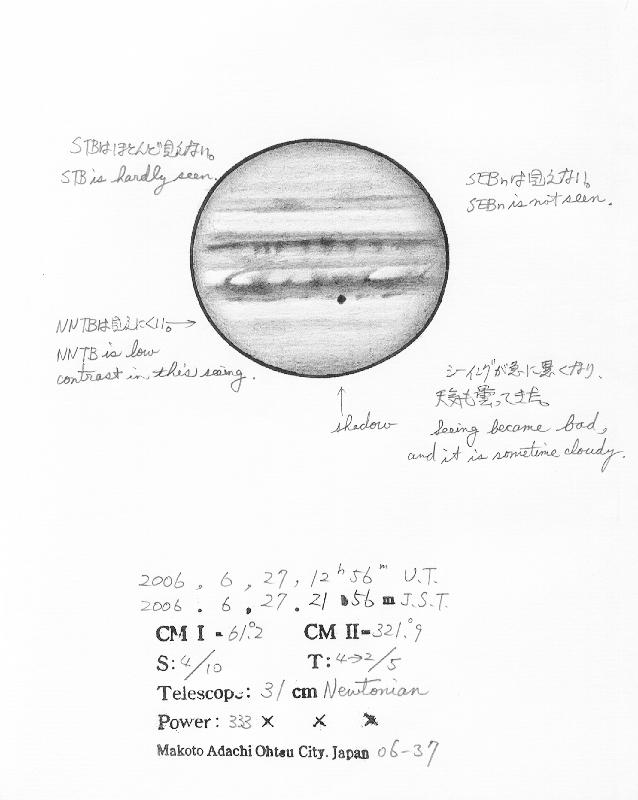 STBはほとんど見えない。
STB is hardly seen.
SEBnは見えない。
SEBn is not seen.
NNTBは見えにくい。→
NNTB is low
contrast in this seeing.
シーイングが急に悪くなり、
天気も曇ってきた。
Seeing became bad,
and it is sometime cloudy.
↑
shadow
2006, 6, 27, 12h 56m U.T.
2006. 6. 27. 21 h 56 m J.S.T.
CM I - 61.°2 CM II - 321.°9
S: 4/10 T: 4→2/5
Telescope: 31 cm Newtonian
Power: 333 × × ×
Makoto Adachi Ohtsu City. Japan 06-37